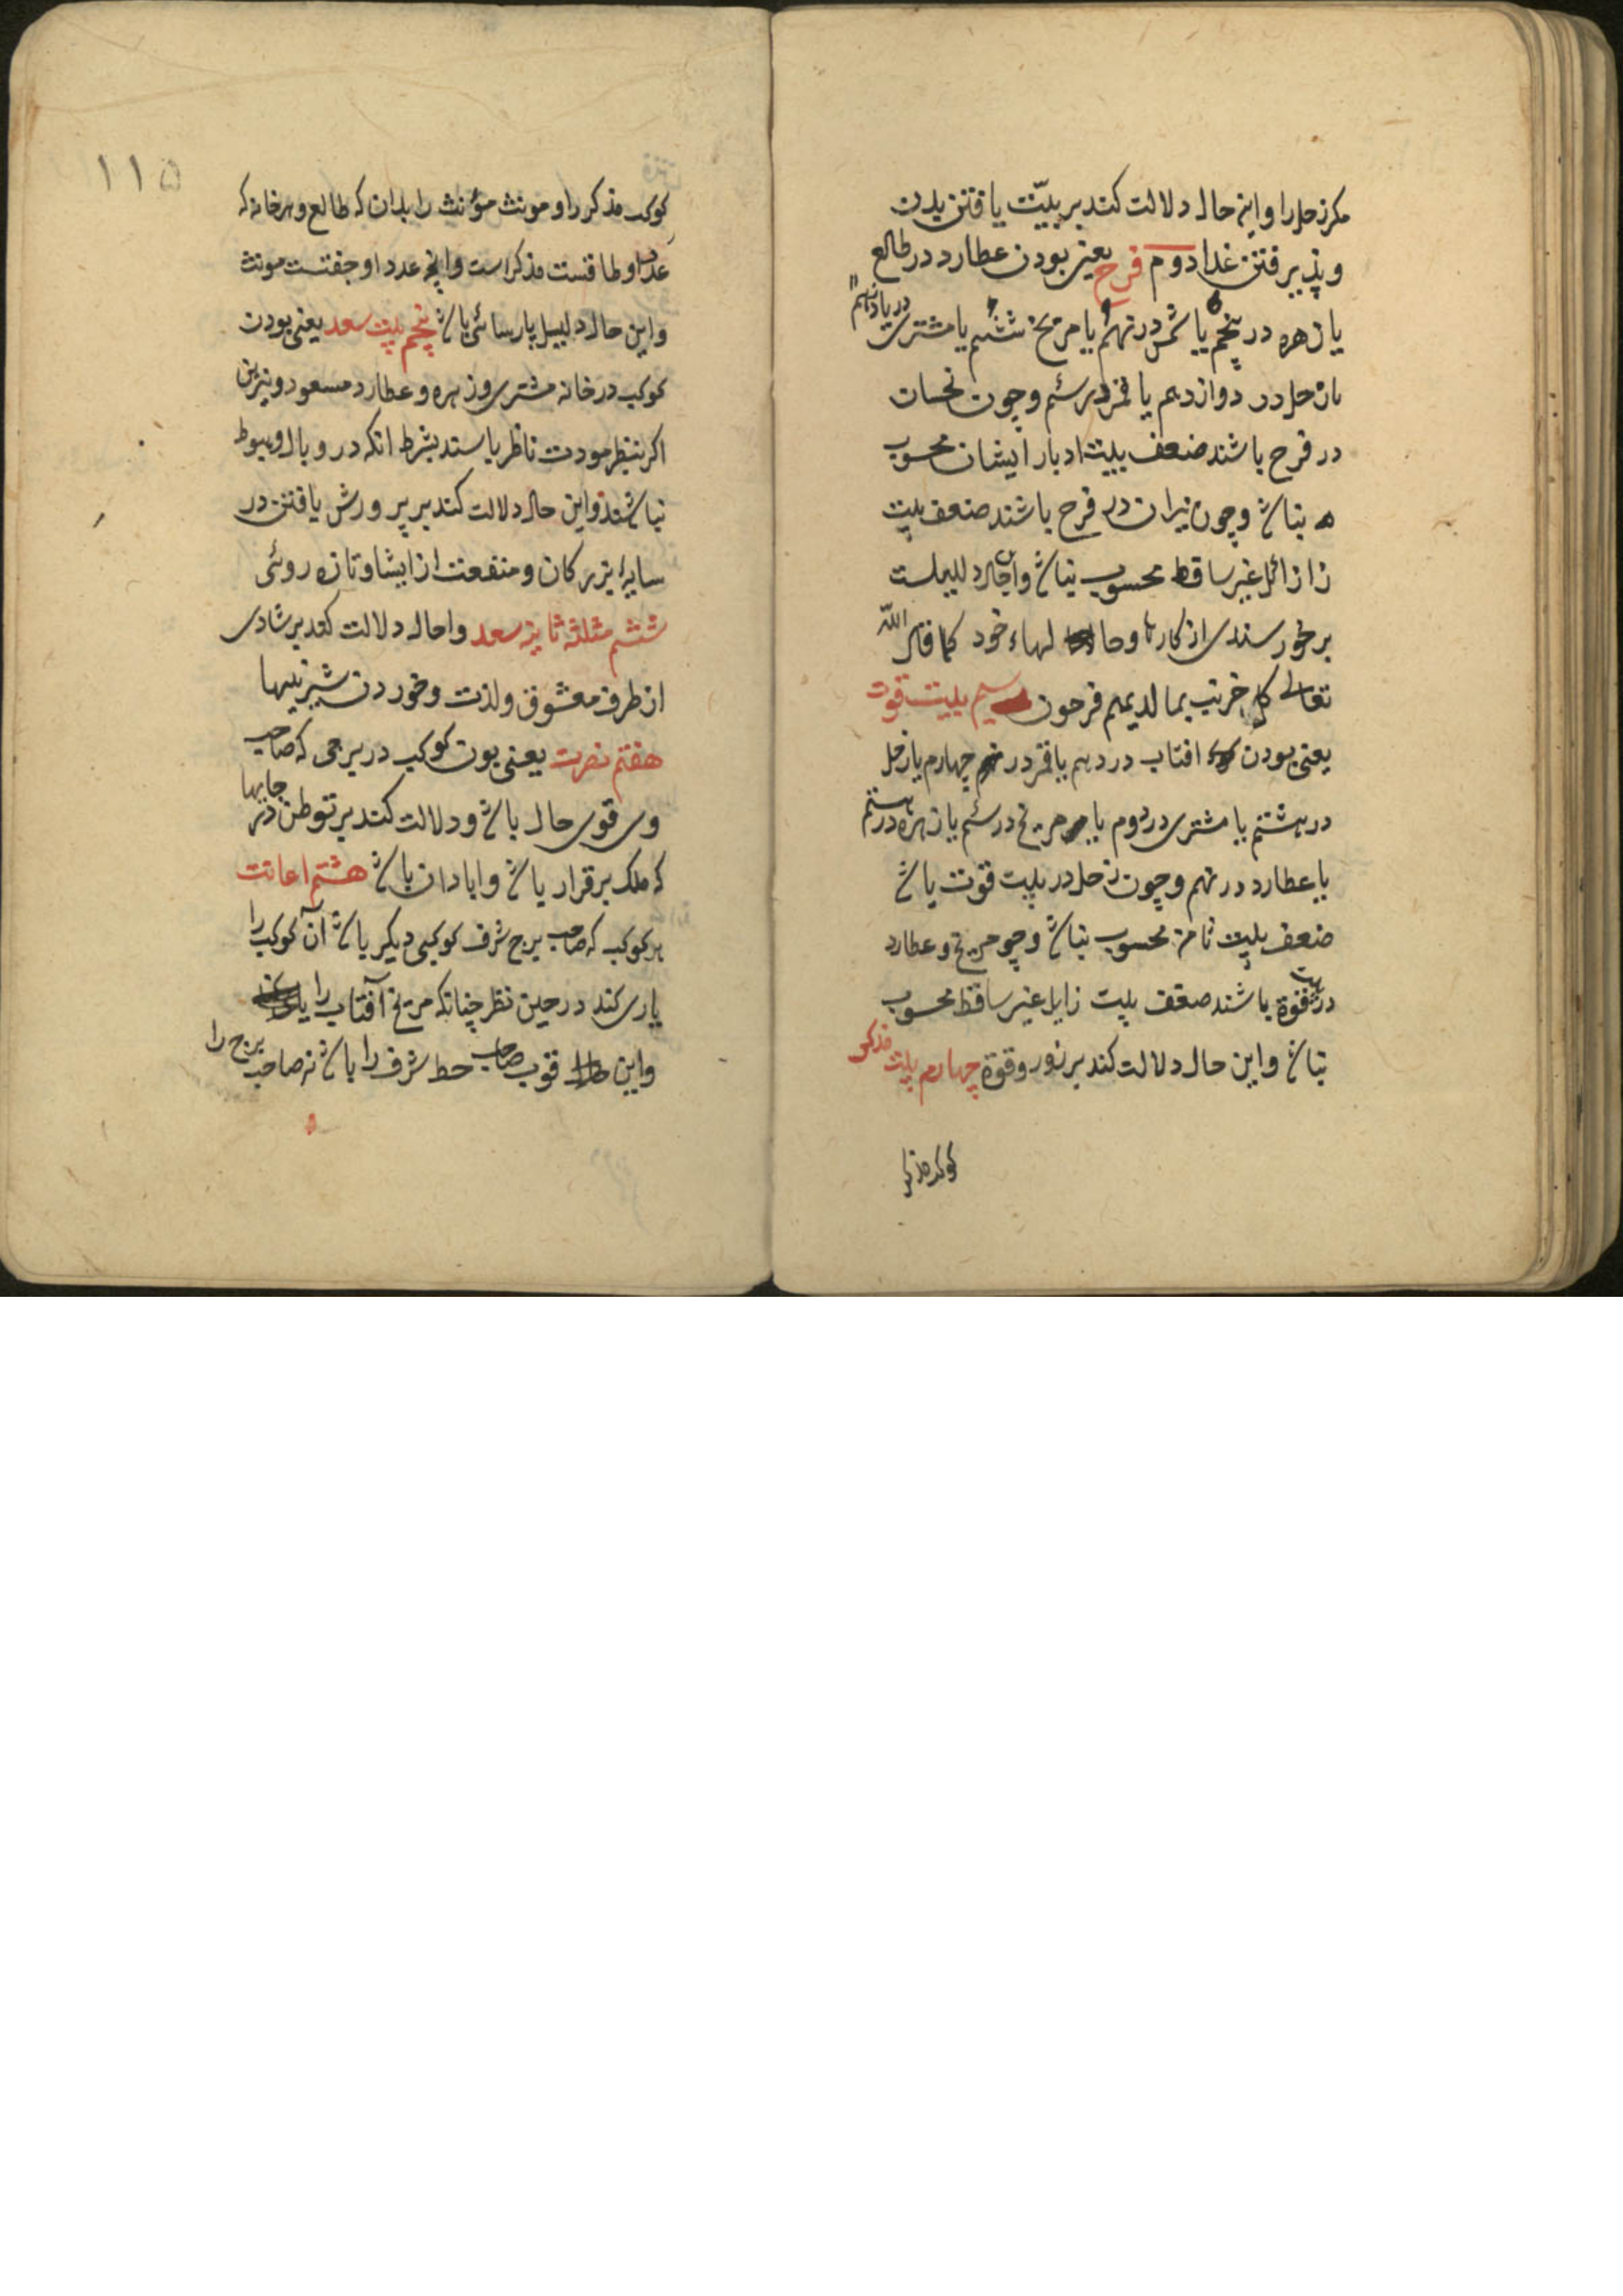 مکر زحل را و این حال دلالت کند بر بیّت یافتن بدن
و پذیرفتن غذا دوم فرح یعنی بودن عطارد در طالع
یا زهره در پنجم یا شمس در نهم یا مریخ ششم یا مشتری در یازدهم
یا زحل در دوازدهم یا قمر در سئم و چون نحسات
در فرح باشند ضعف بیت ادبار ایشان محسوب
نباشد و چون نیران در فرح باشند ضعف بیت
زا زائل غیر ساقط محسوب نباشد و این حال دلیلست
بر خورسندی از کارها و حالهاء خود کما قال الله
تعالی کل حزب بما لدیهم فرحون سیم بیت قوت
یعنی بودن افتاب در دهم یا قمر در چهارم یا زحل
در هشتم یا مشتری در دوم یا مریخ در سئم یا زهره در
یا عطارد در نهم و چون زحل در بیت قوت باشد
ضعف بیت ثامن محسوب نباشد و چو مریخ و عطارد
در بیت قوة باشند ضعف بیت زایل غیر ساقط محسوب
نباشد و این حال دلالت کند بر زور و قوة چهارم بیت مذکر
کوکب مذکر
۱۱۵
کوکب مذکر را و مونث مؤنث را بدان که طالع و هر خانه که
عدد او طاقست مذکر است و انچه عدد او جفتست مونث
و این حال دلیل پارسائی باشد پنجم بیت سعد یعنی بودن
کوکب در خانه مشتری و زهره و عطارد مسعود و نیرین
اکر بنظر مودت ناظر باسند بشرط انکه در وبال و هبوط
نباشند و این حال دلالت کند بر پرورش یافتن در
سایه بزرکان و منفعت از ایشا و تازه روئی
ششم مثلثه ثانیه سعد و احال دلالت کند بر شادی
از طرف معشوق و لذت و خوردن شیرنیها
هفتم نصرت یعنی بون کوکب در برجی که صاحب
وی قوی حال باشد و دلالت کند بر توطن در جایها
که ملک برقرار باشد و ابادان باشد هشتم اعانت
هر کوکب که صاحب برج شرف کوکبی دیکر باشد آن کوکب را
یاری کند در حین نظر چنانکه مریخ آفتاب را
و این قوب صاحب حط شرف را باشد نه صاحب برج را